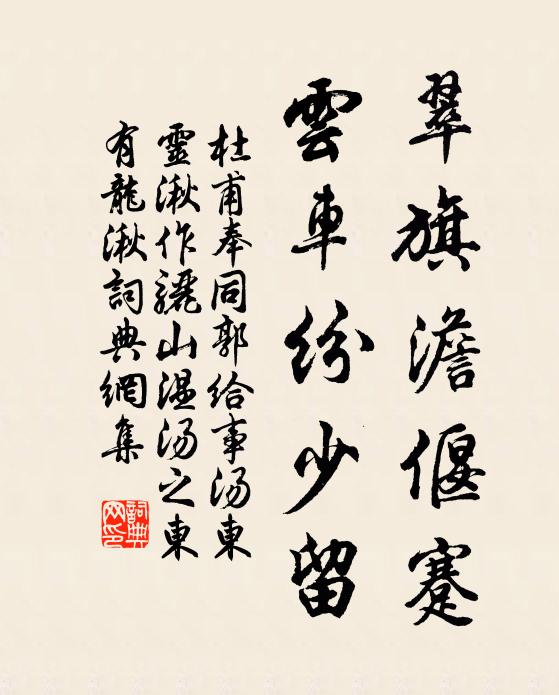 翠旗澹偃蹇
雲車紛少留
杜甫奉同郭給事湯東
靈湫作驪山溫湯之東
有龍湫詞典網集
詞典网印